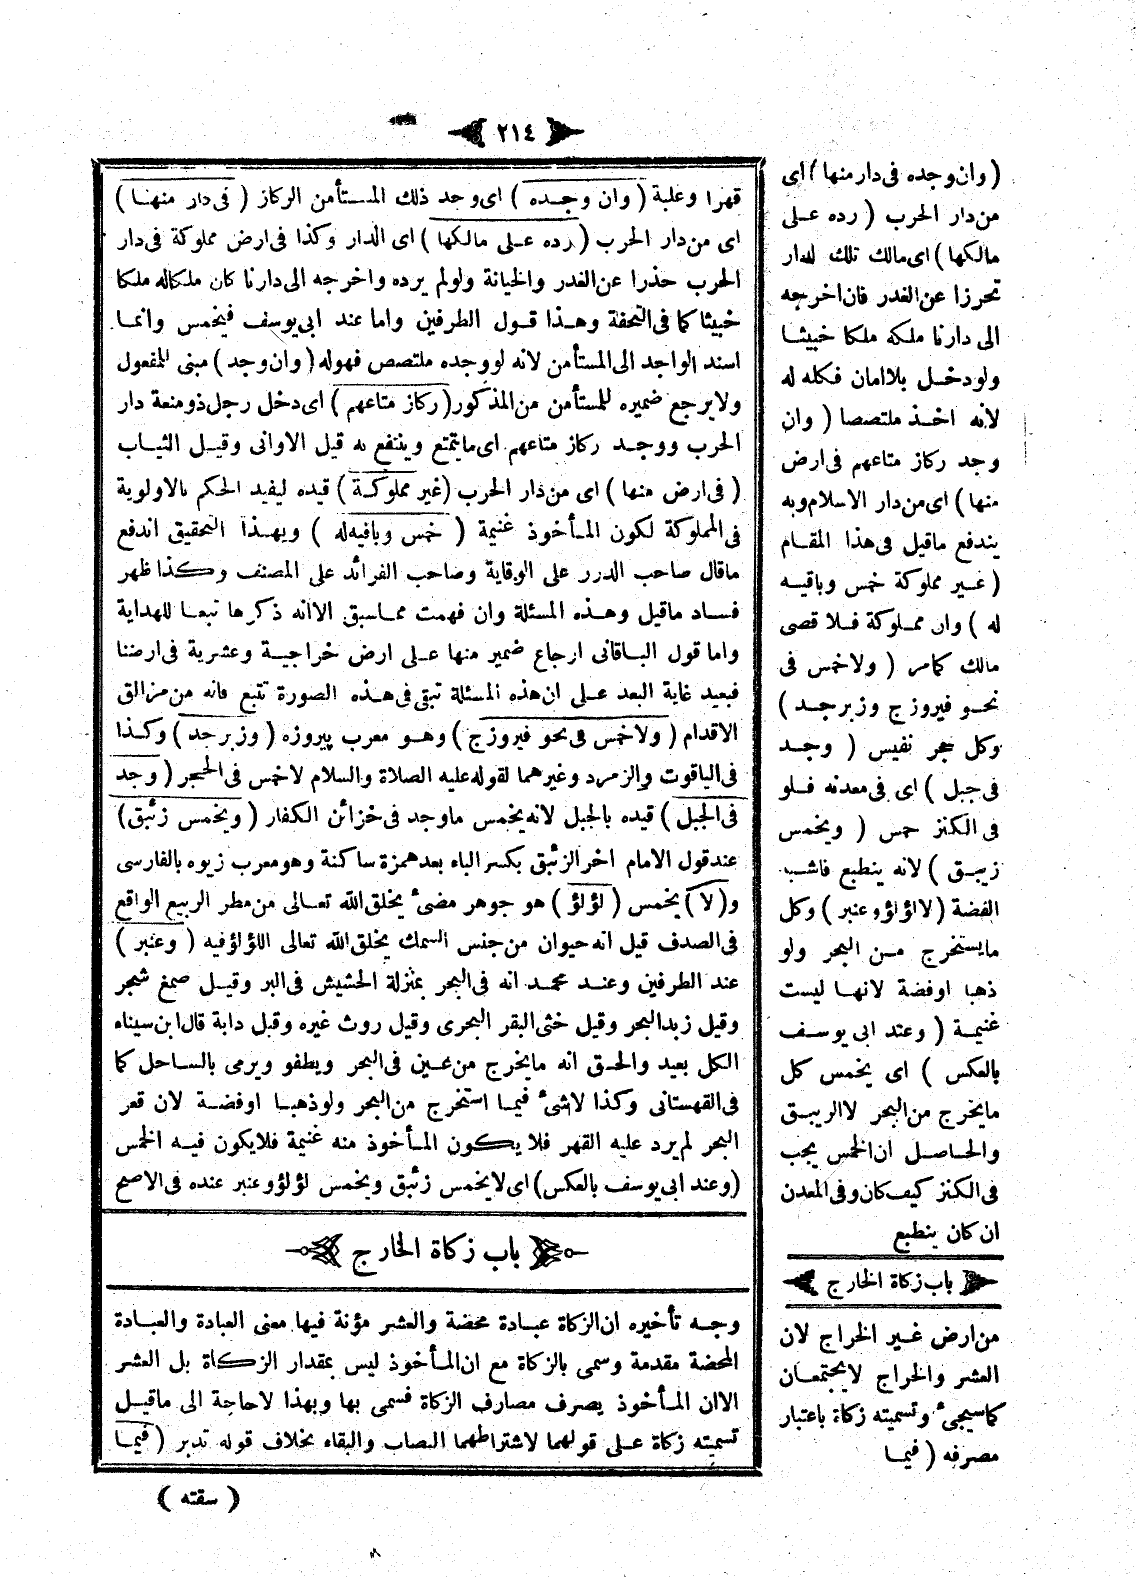 ٢١٤
قهرا وغلبة ( وان وجده ) اى وجد ذلك المستأمن الركاز ( فى دار منها )
اى من دار الحرب ( رده على مالكها ) اى الدار وكذا فى ارض مملوكة فى دار
الحرب حذرا عن الغدر والخيانة ولو لم يرده واخرجه الى دارنا كان ملكاله ملكا
خبيثا كما فى التحفة وهذا قول الطرفين واما عند ابى يوسف فيخمس وانما
اسند الواجد الى المستأمن لانه لو وجده ملتصص فهوله ( وان وجد ) مبنى للمفعول
ولا يرجع ضميره للمستأمن من المذكور ( ركاز متاعهم ) اى دخل رجل ذو منعة دار
الحرب ووجد ركاز متاعهم اى ما يتمتع وينتفع به قيل الاوانى وقيل الثياب
( فى ارض منها ) اى من دار الحرب ( غير مملوكة ) قيده ليفيد الحكم بالاولوية
فى المملوكة لكون المأخوذ غنيمة ( خمس وباقيه له ) وبهذا التحقيق اندفع
ماقال صاحب الدرر على الوقاية وصاحب الفرائد على المصنف وكذا ظهر
فساد ماقيل وهذه المسئلة وان فهمت مماسبق الاانه ذكرها تبعا للهداية
واما قول الباقانى ارجاع ضمير منها على ارض خراجية وعشرية فى ارضنا
فبعيد غاية البعد على ان هذه المسئلة تبقى فى هذه الصورة تتبع فانه من مزالق
الاقدام ( ولاخمس فى نحو فيروزج ) وهو معرب پيروزه ( وزبرجد ) وكذا
فى الياقوت والزمرد وغيرهما لقوله عليه الصلاة والسلام لاخمس فى الحجر ( وجد
فى الجبل ) قيده بالجبل لانه يخمس ماوجد فى خزائن الكفار ( ويخمس زئبق )
عند قول الامام اخر الزئبق بكسر الباء بعد همزة ساكنة وهو معرب زيوه بالفارسى
و( لا ) يخمس ( لؤلؤ ) هو جوهر مضىء يخلق الله تعالى من مطر الربيع الواقع
فى الصدف قيل انه حيوان من جنس السمك يخلق الله تعالى اللؤلؤ فيه ( وعنبر )
عند الطرفين وعند محمد انه فى البحر بمنزلة الحشيش فى البر وقيل صمغ شجر
وقيل زبد البحر وقيل خثى البقر البحرى وقيل روث غيره وقيل دابة قال ابن سيناء
الكل بعيد والحق انه مايخرج من عين فى البحر ويطفو ويرمى بالساحل كما
فى القهستانى وكذا لاشىء فيما استخرج من البحر ولو ذهبا اوفضة لان قعر
البحر لم يرد عليه القهر فلا يكون المأخوذ منه غنيمة فلا يكون فيه الخمس
( وعند ابى يوسف بالعكس ) اى لا يخمس زئبق ويخمس لؤلؤ وعنبر عنده فى الاصح
باب زكاة الخارج
وجه تأخيره ان الزكاة عبادة محضة والعشر مؤنة فيها معنى العبادة والعبادة
المحضة مقدمة وسمى بالزكاة مع ان المأخوذ ليس بمقدار الزكاة بل العشر
الاان المأخوذ يصرف مصارف الزكاة فسمى بها وبهذا لاحاجة الى ماقيل
تسميته زكاة على قولهما لاشتراطهما النصاب والبقاء بخلاف قوله تدبر ( فيما
( سقته )
( وان وجده فى دار منها ) اى
من دار الحرب ( رده على
مالكها ) اى مالك تلك الدار
تحرزا عن الغدر فان اخرجه
الى دارنا ملكه ملكا خبيثا
ولو دخل بلا امان فكله له
لانه اخذ ملتصصا ( وان
وجد ركاز متاعهم فى ارض
منها ) اى من دار الاسلام وبه
يندفع ماقيل فى هذا المقام
( غير مملوكة خمس وباقيه
له ) وان مملوكة فلا قصى
مالك كمامر ( ولاخمس فى
نحو فيروزج وزبرجد )
وكل حجر نفيس ( وجد
فى جبل ) اى فى معدنه فلو
فى الكنز خمس ( ويخمس
زيبق ) لانه ينطبع فاشبه
الفضة ( لا لؤلؤ وعنبر ) وكل
مايستخرج من البحر ولو
ذهبا اوفضة لانها ليست
غنيمة ( وعند ابى يوسف
بالعكس ) اى يخمس كل
مايخرج من البحر لا الزيبق
والحاصل ان الخمس يجب
فى الكنز كيف كان وفى المعدن
ان كان ينطبع
باب زكاة الخارج
من ارض غير الخراج لان
العشر والخراج لايجتمعان
كما سيجىء وتسميته زكاة باعتبار
مصرفه ( فيما